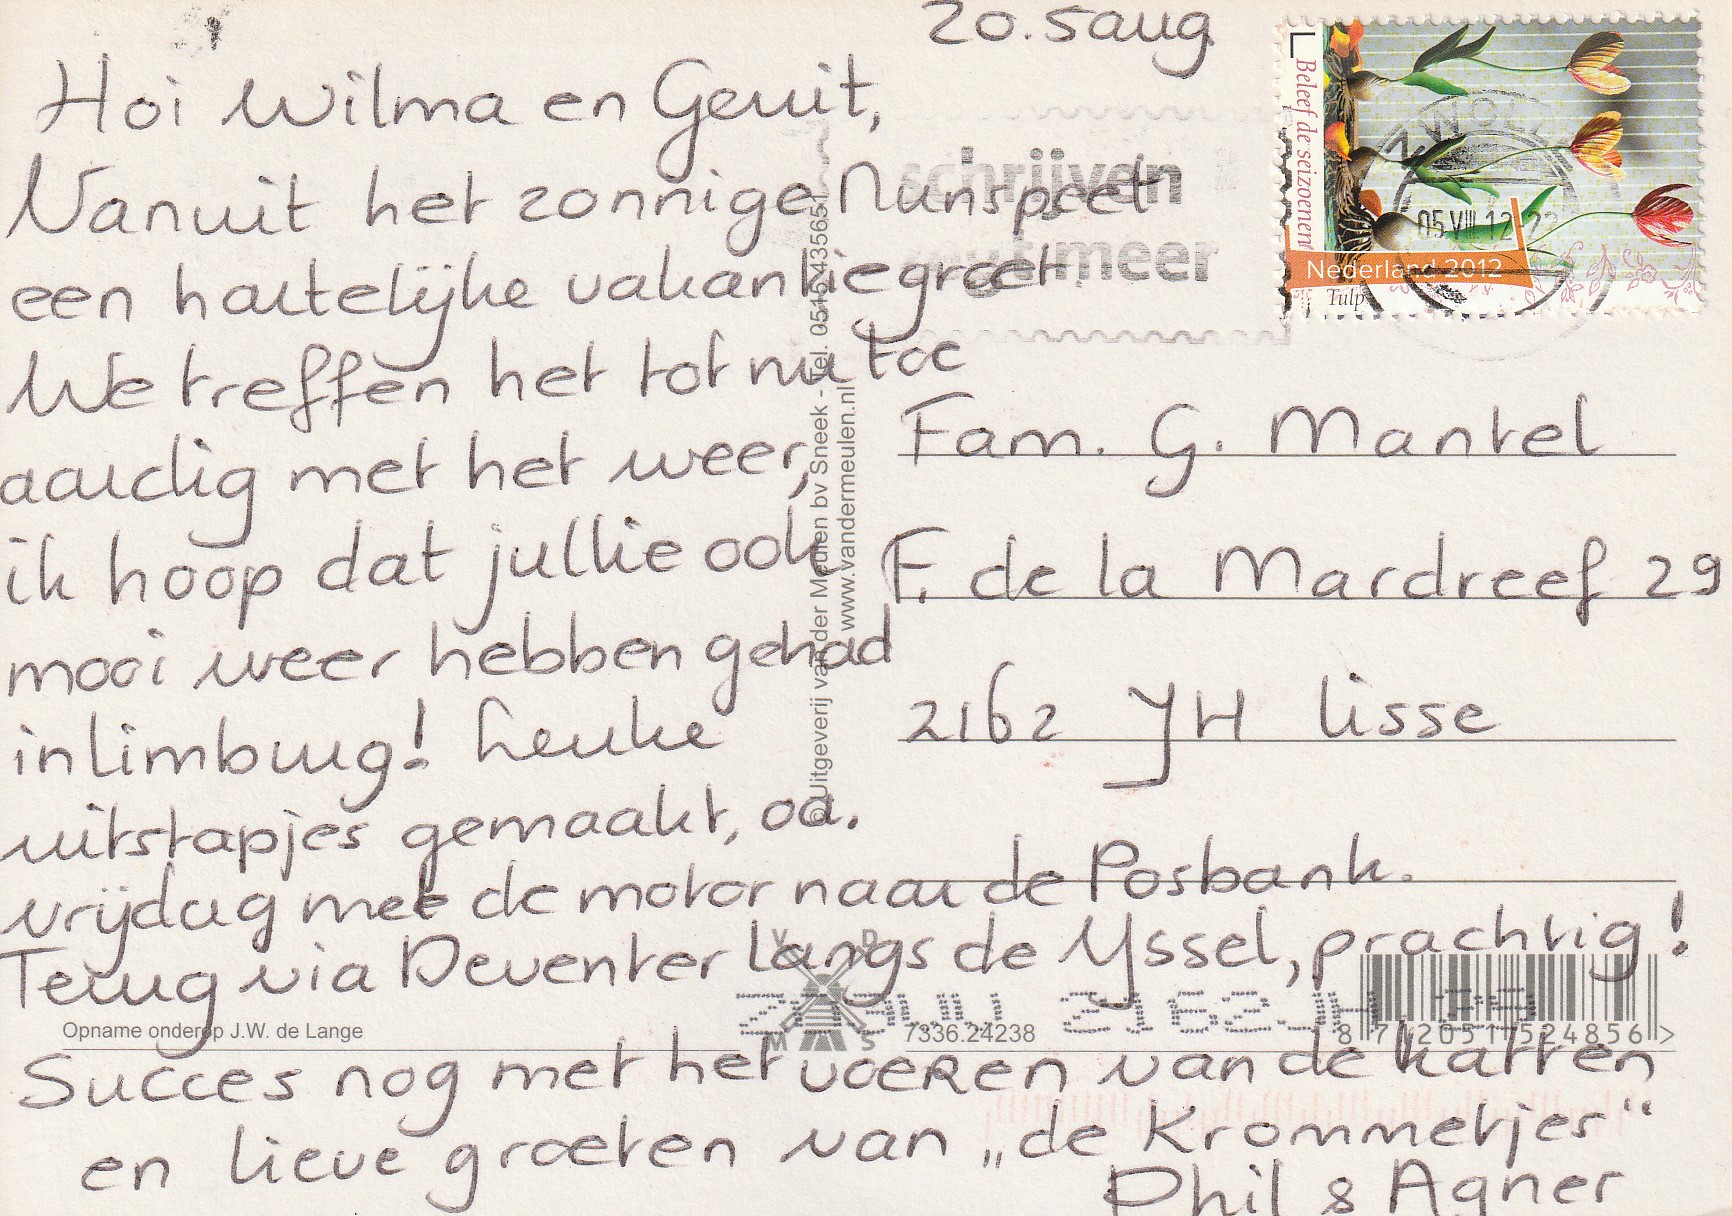 20.5 aug
Hoi Wilma en Gerrit,
Vanuit het zonnige Nunspeet
een hartelijke vakantiegroet.
We treffen het tot nu toe
aardig met het weer,
ik hoop dat jullie ook
mooi weer hebben gehad
in limburg! Leuke
uitstapjes gemaakt, oa.
vrijdag met de motor naar de Posbank.
Terug via Deventer langs de Yssel, prachtig!
Succes nog met het voeren van de katten
en lieve groeten van „de Krommetjes“
Phil & Agnes
Fam. G. Mantel
F. de la Mardreef 29
2162 JH lisse
Beleef de seizoenen!
Nederland 2012
Tulp
ZWOLL
05.VIII.12
schrijven
zegt meer
© Uitgeverij van der Meulen bv Sneek - Tel. 0515-435651
www.vandermeulen.nl
V D
M S
Opname onder op J.W. de Lange
7336.24238
2162JH 29
8 712051 524856 >